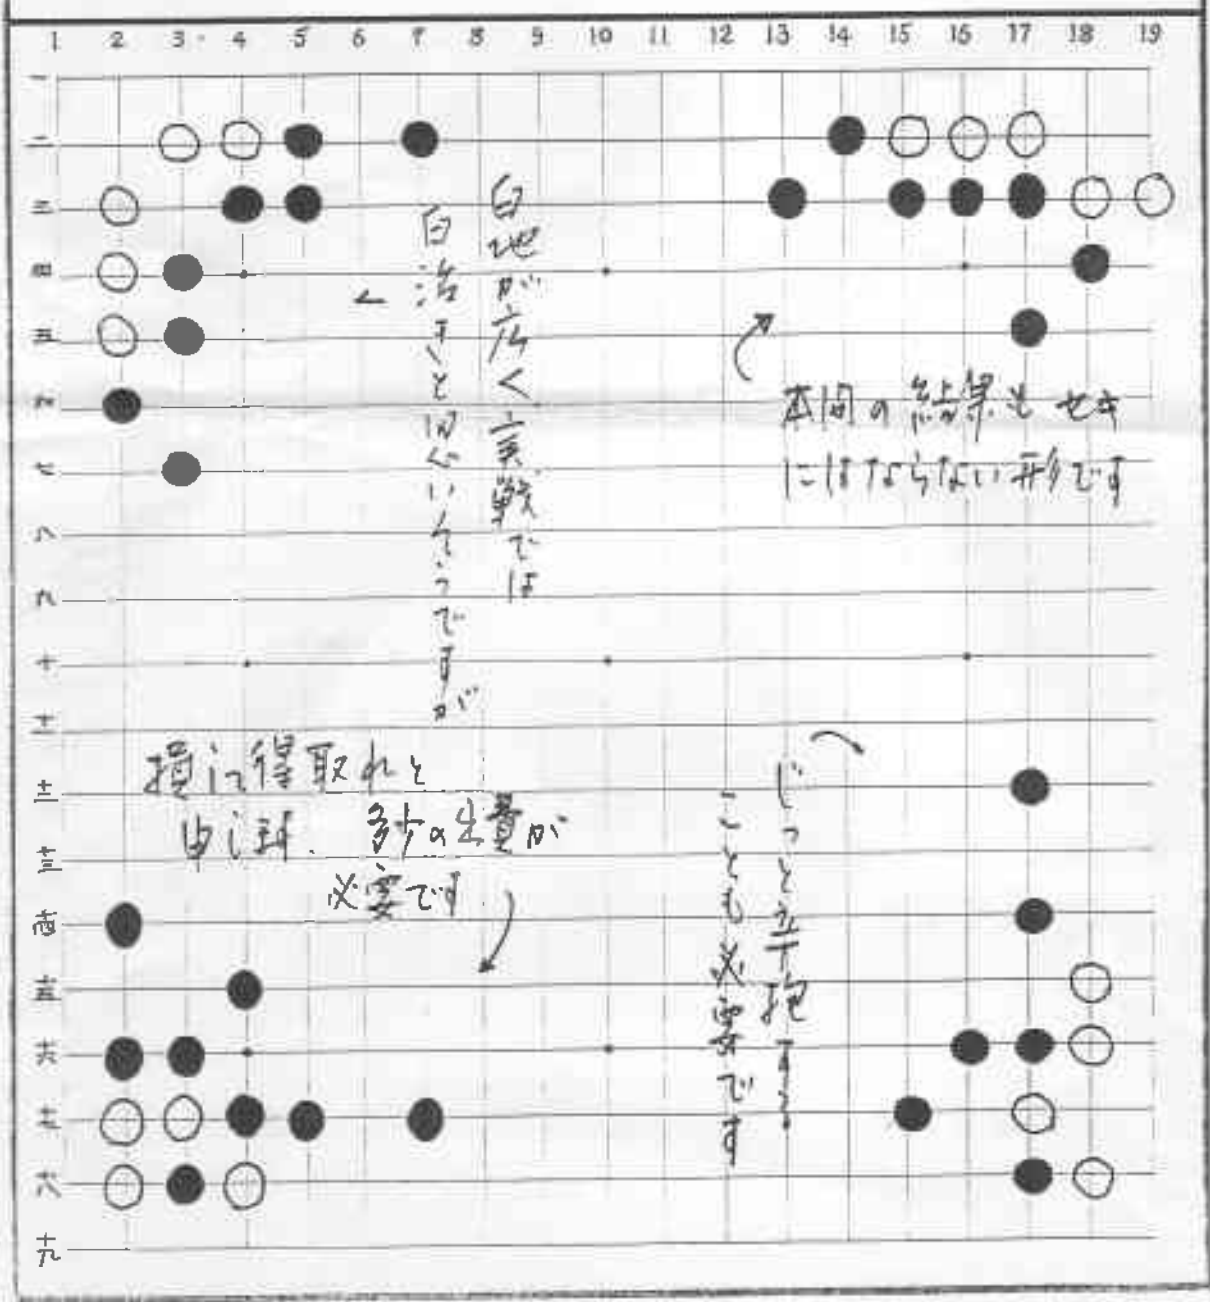 1 2 3 4 5 6 7 8 9 10 11 12 13 14 15 16 17 18 19
一
二
三
四
五
六
七
八
九
十
十一
十二
十三
十四
十五
十六
十七
十八
十九
白地が広く実戦では
白活きと思いそうですが
本問の結果もセキ
にはならない形です
損して得取れと
申します、多少の出費が
必要です
じっと辛抱する
ことも必要です